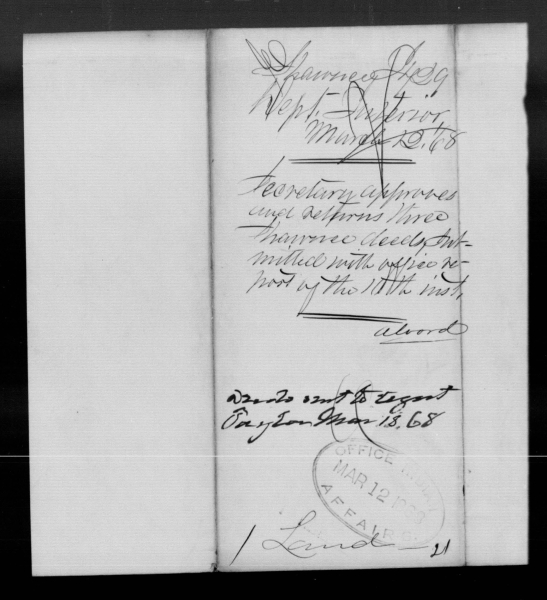 Shawnee I 429
Dept. Interior
March 12. 68
Secretary approves
and returns three
Shawnee deeds, sub-
mitted with office re-
port of the 10th inst.
Alvord
Deeds sent to Agent
Taylor Mar 13, 68
OFFICE INDIAN
MAR 12 1868
AFFAIRS
1 Land 21